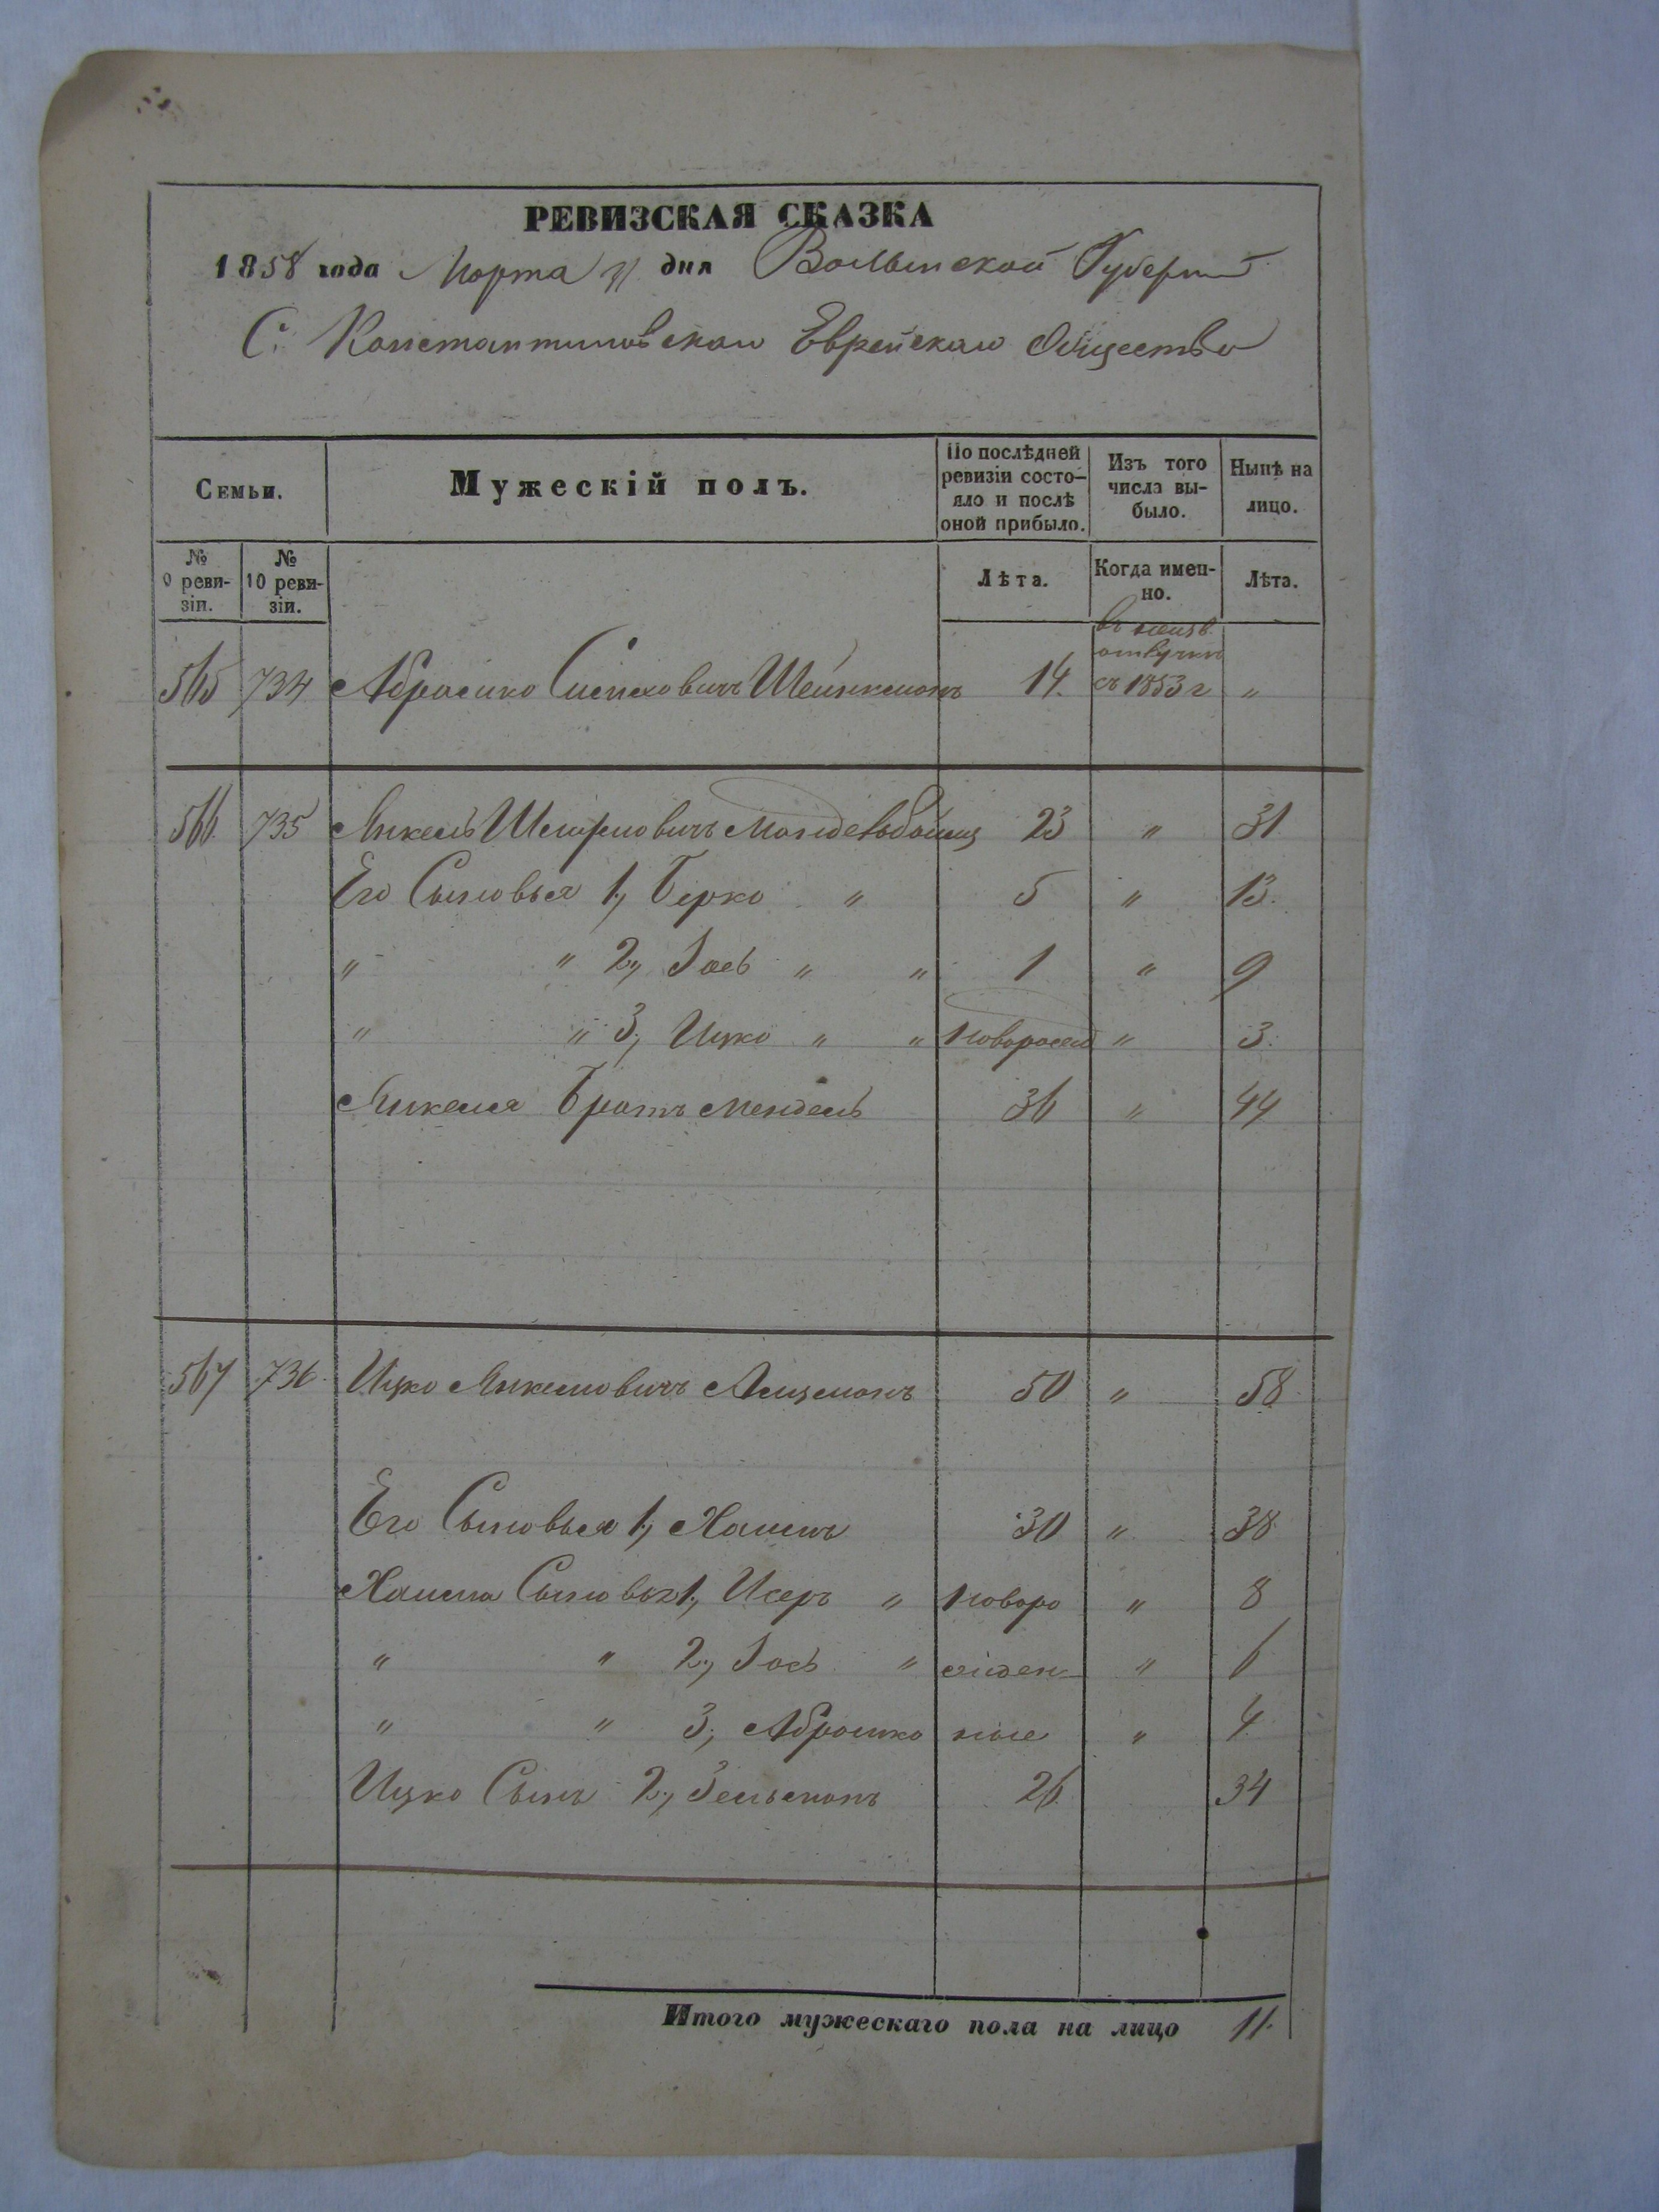 РЕВИЗСКАЯ СКАЗКА
1858 года Марта 31 дня Волынской Губернии
С. Константиновскаго Еврейскаго Общества
Семьи. Мужескій полъ. По послѣдней ревизіи состояло и послѣ оной прибыло. Изъ того числа выбыло. Нынѣ на лицо.
№ 9 ревизіи. № 10 ревизіи. Лѣта. Когда именно. Лѣта.
565 734 Абрамко Шейнкманъ 14. въ отлучкѣ съ 1853 г "
566. 735 Янкель Шмерковичъ 23 " 31
Его Сыновья 1, Берко " 5 " 13.
" " 2, Іось " " 1 " 9
" " 3, Ицко " " новорожд " 3.
Янкеля Братъ Мендель 36 " 44
567 736. Ицко Янкелевичъ 50 " 58
Его Сыновья 1, Хаимъ 30 " 38
Хаима Сыновья 1, Исеръ " новоро " 8
" " 2, Іось " жден " 6
" " 3, Абрамко ные " 4
Ицко Сынъ 2, Зельманъ 26. 34
Итого мужескаго пола на лицо 11.